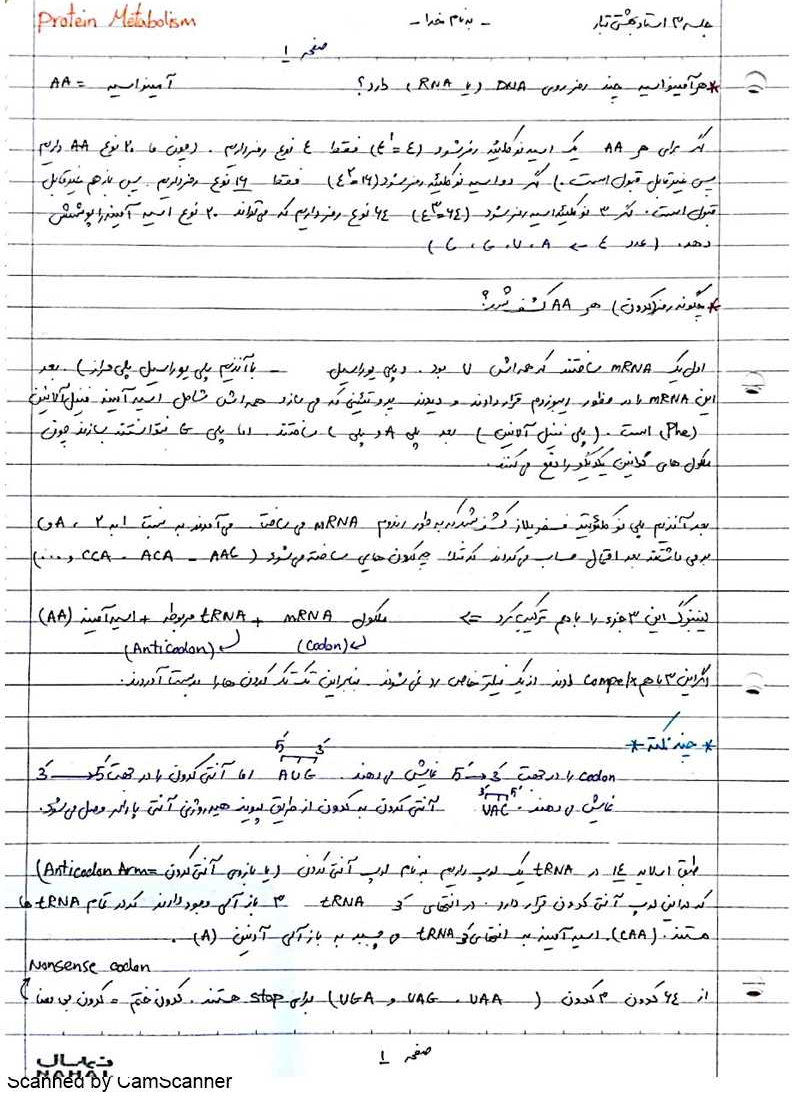 Protein Metabolism - به نام خدا - جلسه ۳ استاد بهشتی تبار
صفحه ۱
* هر آمینواسید چند رمز روی DNA (یا RNA) دارد؟ آمینواسید = AA
اگر برای هر AA یک اسید نوکلئیک رمز شود (۴¹=۴) فقط ۴ نوع رمز داریم. (چون ما ۲۰ نوع AA داریم
پس غیرقابل قبول است.) اگر دو اسید نوکلئیک رمز شود (۴²=۱۶) فقط ۱۶ نوع رمز داریم. پس باز هم غیرقابل
قبول است. اگر ۳ نوکلئیک اسید رمز شود (۴³=۶۴) ۶۴ نوع رمز داریم که می‌تواند ۲۰ نوع اسید آمینه را پوشش
دهد. (عدد ۴ ← A، U، G، C)
* چگونه رمز (کدون) هر AA کشف شد؟
اول یک mRNA ساختند که همه‌اش U بود. (پلی یوراسیل - با آنزیم پلی یوراسیل پلی مراز) بعد
این mRNA را در مقابل ریبوزوم قرار دادند و دیدند پروتئینی که می سازد همه‌اش شامل اسید آمینه فنیل آلانین
(Phe) است. (پلی فنیل آلانین) بعد پلی A و پلی C ساختند. اما پلی G نتوانستند بسازند چون
مولکول های گوانین یکدیگر را دفع می‌کنند.
بعد آنزیم پلی نوکلئوتید فسفریلاز کشف شد که به طور رندوم mRNA می ساخت. می‌آمدند به نسبت ۱ به ۲، A و C
برمی داشتند بعد احتمال حساب می‌کردند که مثلا چه کدون هایی ساخته می‌شود (CCA - ACA - AAC و ...)
این ۳ جزء را با هم ترکیب کرد => مولکول mRNA + tRNA مربوطه + اسید آمینه (AA)
(Codon) (Anticodon)
اگر این ۳ با هم Compelx دادند از یک فیلتر خاص رد نمی شوند. بنابراین تک تک کدون ها را بدست آوردند.
* چند نکته *
5' 3'
codon را در جهت 3'→5' نمایش می دهند. AUG اما آنتی کدون را در جهت 5'→3'
نمایش می دهند. 3' UAC 5' آنتی کدون به کدون از طریق پیوند هیدروژنی آنتی پارالل وصل می‌شود.
طبق اسلاید ۱۴ در tRNA یک لوپ داریم به نام لوپ آنتی کدون (یا بازوی آنتی کدون = Anticodon Arm)
که در این لوپ آنتی کدون قرار دارد. در انتهای 3' tRNA ۳ باز آلی وجود دارند که در تمام tRNA ها
هستند. (CAA). اسید آمینه به انتهای 3' tRNA می چسبد به باز آلی آدنین (A).
Nonsense codon
از ۶۴ کدون ۳ کدون (UAA، UAG و UGA) برای stop هستند. کدون ختم = کدون بی معنا
صفحه ۱
NAHAL
Scanned by CamScanner